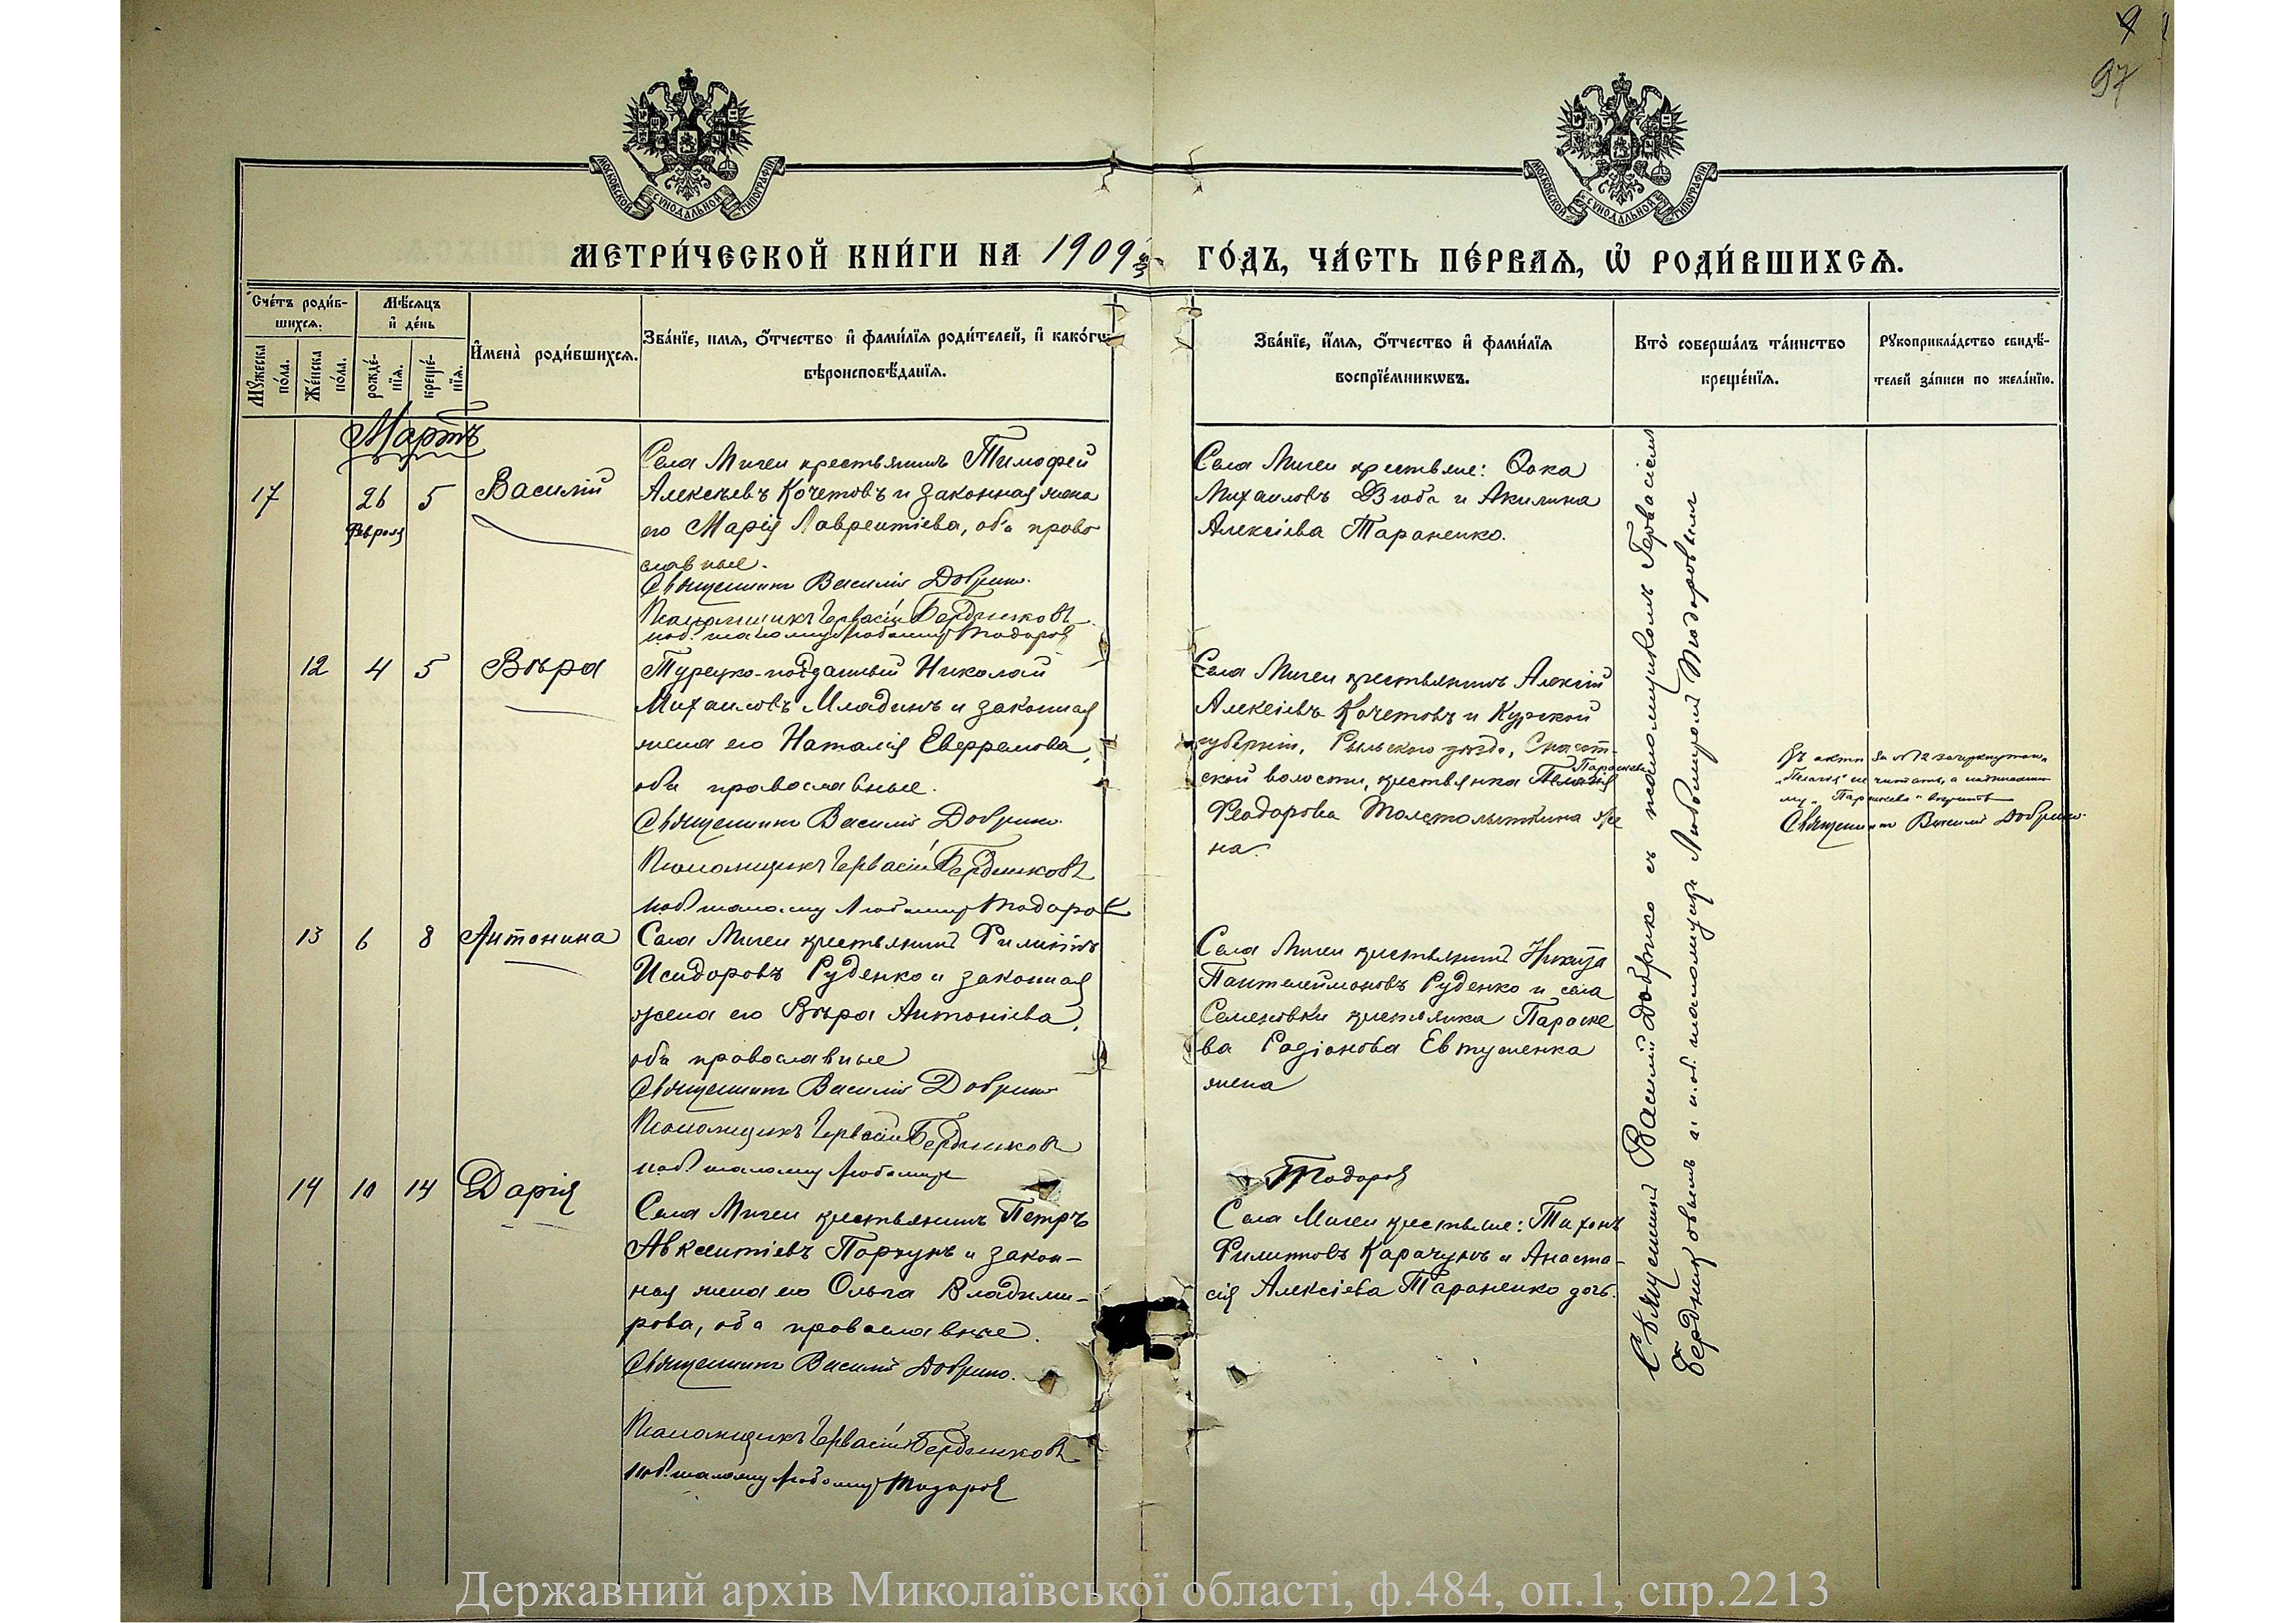 97
МОСКОВСКОЙ СѴНОДАЛЬНОЙ ТИПОГРАФІИ
МОСКОВСКОЙ СѴНОДАЛЬНОЙ ТИПОГРАФІИ
МЕТРИ́ЧЕСКОЙ КНИ́ГИ НА 1909 ГО́ДЪ, ЧА́СТЬ ПЕ́РВАЯ, Ѡ҆ РОДИ́ВШИХСЯ.
Сче́тъ роди́в-
шихся.
Мꙋжеска по́ла.
Же́нска по́ла.
Мѣ́сяцъ
и҆ де́нь
рожде́-
нїя.
креще́-
нїя.
И҆мена̀ роди́вшихся.
Зва́нїе, имя, ѻ҆́тчество и҆ фами́лїя роди́телей, и҆ како́гѡ
вѣроисповѣ́данїя.
Зва́нїе, и҆́мя, ѻ҆́тчество и҆ фами́лїя
воспрїе́мникѡвъ.
Кто̀ соверша́лъ та́инство
креще́нїя.
Рꙋкоприкла́дство свидѣ́-
телей за́писи по жела́нїю.
Мартъ
17
26
Февраля
5
Василій
Села Мигеи крестьянинъ Тимофей
Алексѣевъ Кочетовъ и законная жена
его Марія Лаврентіева, оба право
славные.
Священникъ Василій Добрико.
Псаломщикъ Гервасій Бердниковъ
и.об. псаломщ. Любомиръ Тодоровъ
Села Мигеи крестьяне:
Михаиловъ Дзюба и Акилина
Алексіева Тараненко.
12
4
5
Вѣра
Турецко-подданный Николай
Михаиловъ Младинъ и законная
жена его Наталія Евфремова,
оба православные.
Священникъ Василій Добрико.
Псаломщикъ Гервасій Бердниковъ
и.об. псаломщ. Любомиръ Тодоровъ
Села Мигеи крестьянинъ Алексій
Алексіевъ Кочетовъ и Курской
губерніи, Рыльскаго уѣзда,
ской волости, крестьянка Пелагія Параскева
Феодорова же
на.
Въ актѣ за №12 зачеркнутое
„Пелагія" не читать, а надписан
му „Параскева" вѣрить
Священникъ Василій Добрико.
13
6
8
Антонина
Села Мигеи крестьянинъ Филиппъ
Исидоровъ Руденко и законная
жена его Вѣра Антоніева,
оба православные
Священникъ Василій Добрико
Псаломщикъ Гервасій Бердниковъ
и.об. псаломщ. Любомиръ Тодоровъ
Села Мигеи крестьянинъ Никита
Пантелеймоновъ Руденко и села
Семеновки крестьянка Параске
ва Родіонова Евтушенка
жена
14
10
14
Дарія
Села Мигеи крестьянинъ Петръ
Авксентіевъ Поркунъ и закон-
ная жена его Ольга Владими-
рова, оба православные.
Священникъ Василій Добрико.
Псаломщикъ Гервасій Бердниковъ
и.об. псаломщ. Любомиръ Тодоровъ
Села Мигеи крестьяне: Тихонъ
Филипповъ Карачунъ и Анаста-
сія Алексіева Тараненко дочь.
Священникъ Василій Добрико съ псаломщикомъ Гервасіемъ
Бердниковымъ и и.об. псаломщика Любомиромъ Тодоровымъ
Державний архів Миколаївської області, ф.484, оп.1, спр.2213